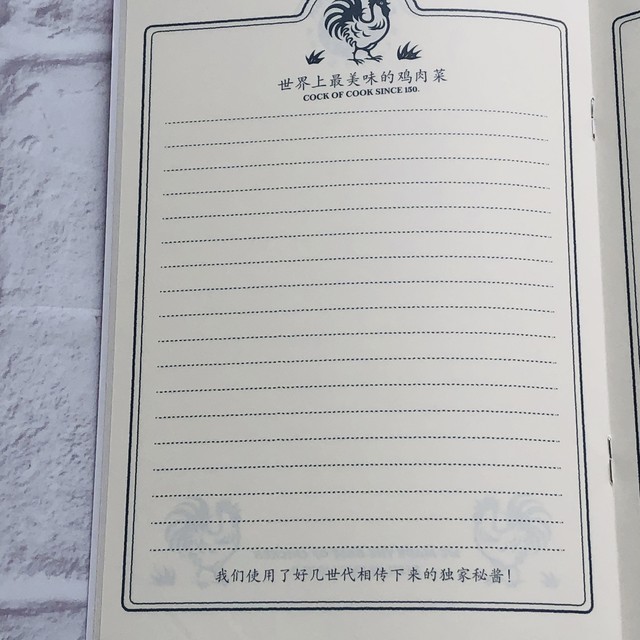 世界上最美味的鸡肉菜
COCK OF COOK SINCE 150.
我们使用了好几世代相传下来的独家秘酱！